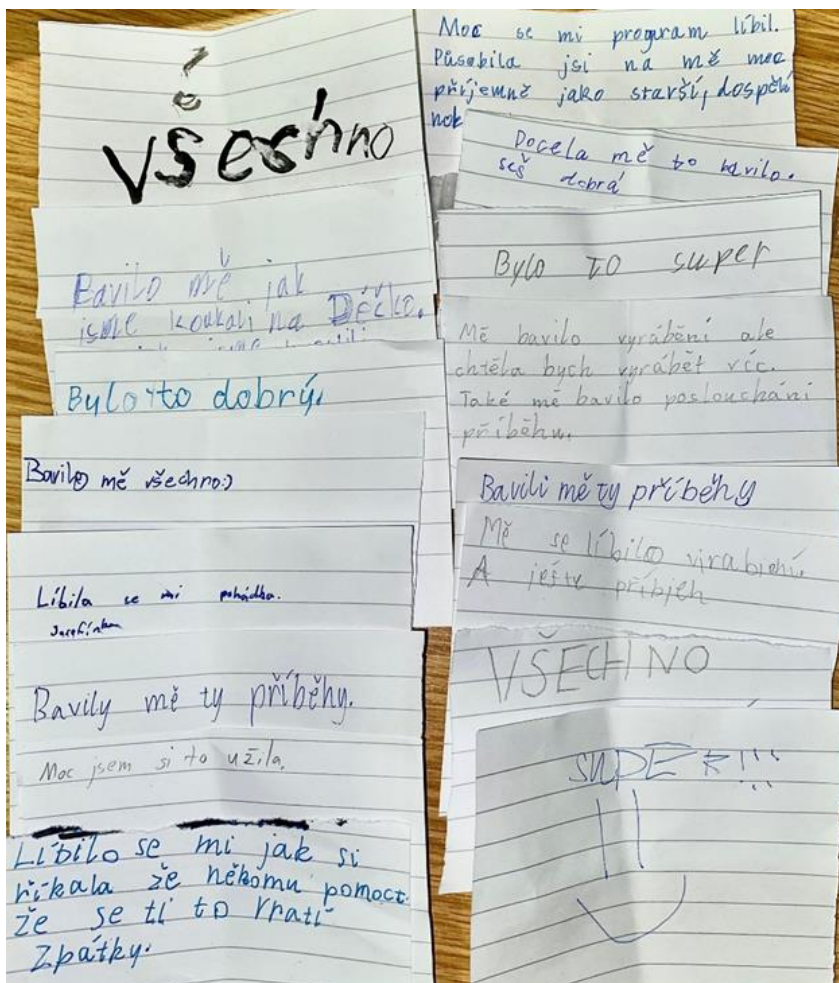 všechno
Bavilo mě jak
jsme koukali na Déčko.
Bylo to dobrý.
Bavilo mě všechno:)
Líbila se mi pohádka.
Bavily mě ty příběhy.
Moc jsem si to užila.
Líbilo se mi jak si
říkala že někomu pomoct.
že se ti to vratí
zpátky.
Moc se mi program líbil.
Působila jsi na mě moc
příjemně jako starší, dospělí
Docela mě to bavilo.
seš dobrá
Bylo to super
Mě bavilo vyrábění ale
chtěla bych vyrábět víc.
Také mě bavilo poslouchání
příběhu.
Bavili mě ty příběhy
Mě se líbilo
A
VŠECHNO
SUPER!!!